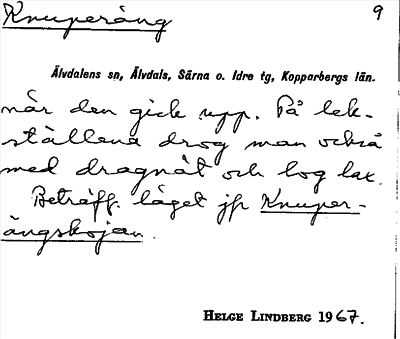 Knuperäng
9
Älvdalens sn, Älvdals, Särna o. Idre tg, Kopparbergs län.
när den gick upp. På lek-
ställena drog man också
med dragnät och tog lax.
Beträff. läget jfr Knuper-
ängskojan.
HELGE LINDBERG 1967.